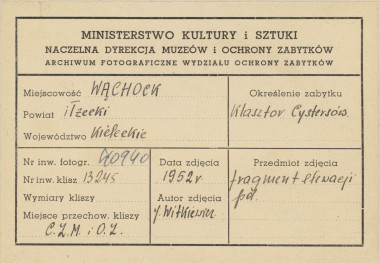 MINISTERSTWO KULTURY i SZTUKI
NACZELNA DYREKCJA MUZEÓW i OCHRONY ZABYTKÓW
ARCHIWUM FOTOGRAFICZNE WYDZIAŁU OCHRONY ZABYTKÓW
Miejscowość WĄCHOCK
Powiat iłżecki
Województwo Kieleckie
Określenie zabytku
Klasztor Cystersów.
Nr inw. fotogr. 40940
Nr inw. klisz 13245
Wymiary kliszy
Miejsce przechow. kliszy
C.Z.M. i O.Z.
Data zdjęcia
1952r.
Autor zdjęcia
J. Witkiewicz
Przedmiot zdjęcia
fragment elewacji
pd.